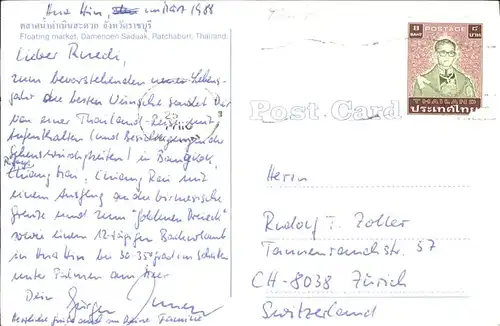 Hua Hin, im Mai 1988
ตลาดน้ำดำเนินสะดวก จังหวัดราชบุรี
Floating market, Damenoen Saduak, Ratchaburi, Thailand.
Lieber Ruedi,
zum bevorstehenden neuen Lebens-
jahr die besten Wünsche sendet Dir
von einer Thailand-Reise mit
Aufenthalten (und Besichtigungen der
Sehenswürdigkeiten) in Bangkok,
Chiang Mai, Chiang Rai mit
einem Ausflug an die birmesische
Grenze und zum "Goldenen Dreieck"
sowie einem 12-tägigen Badeurlaub
in Hua Hin bei 30-35 grad im Schatten
unter Palmen am Meer
Dein Jürgen
Herzliche Grüsse auch an Deine Familie
8 BAHT POSTAGE ๘ บาท
THAILAND
ประเทศไทย
Post Card
Herrn
Rudolf T. Zoller
Tannenrauchstr. 57
CH-8038 Zürich
Switzerland